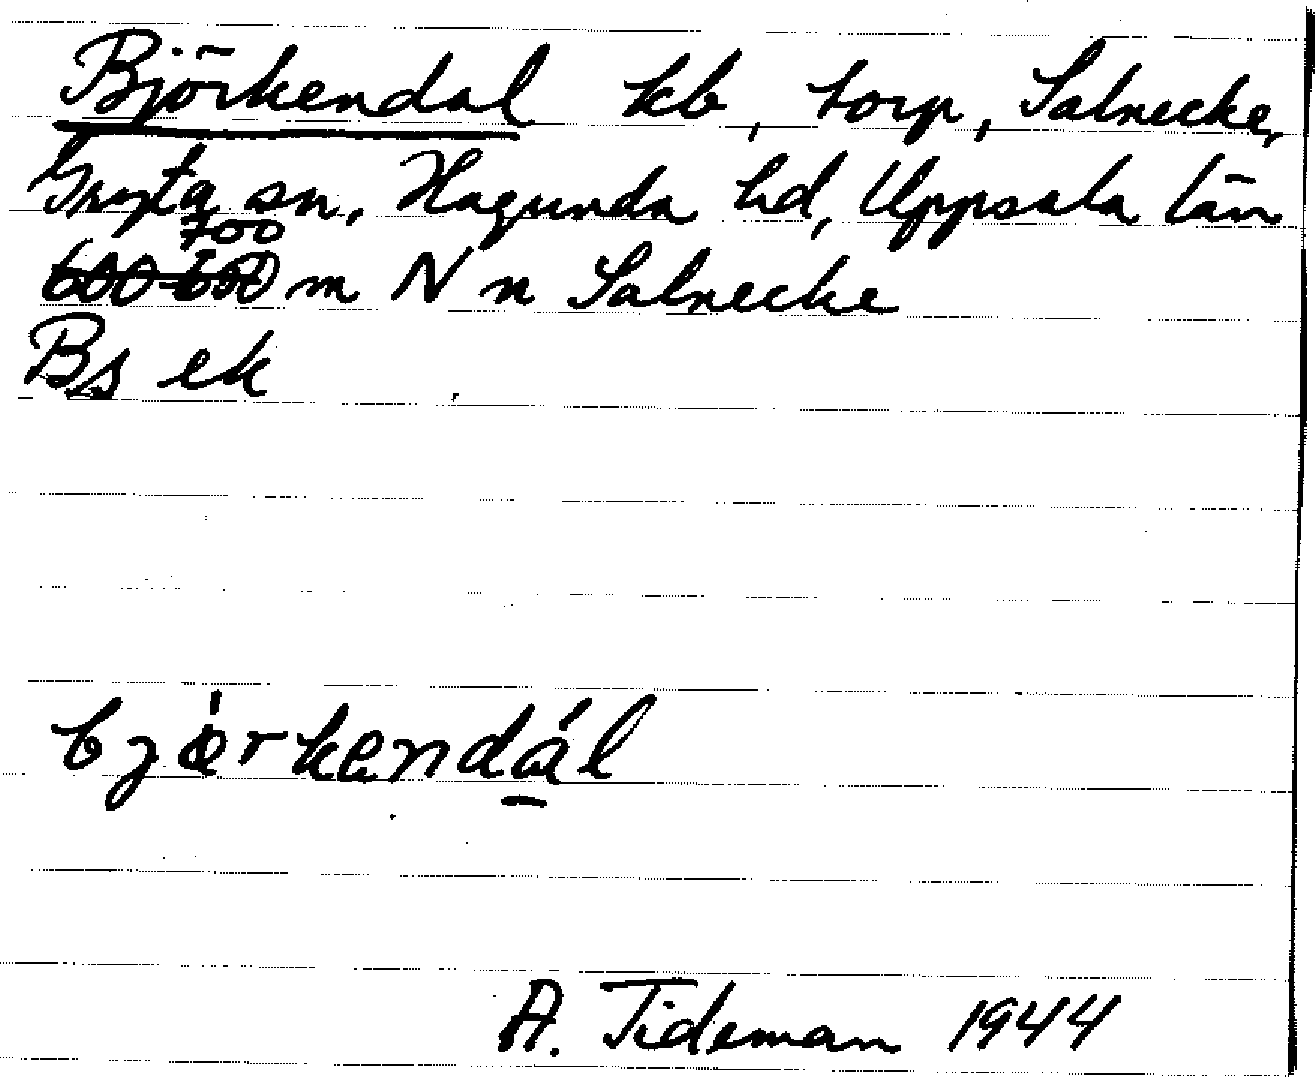 Björkendal kb, torp, Salnecke,
Gryta sn, Hagunda hd, Uppsala län
700
600-650 m N n Salnecke
Bs ek
bjœ̀rkendál
A. Tideman 1944